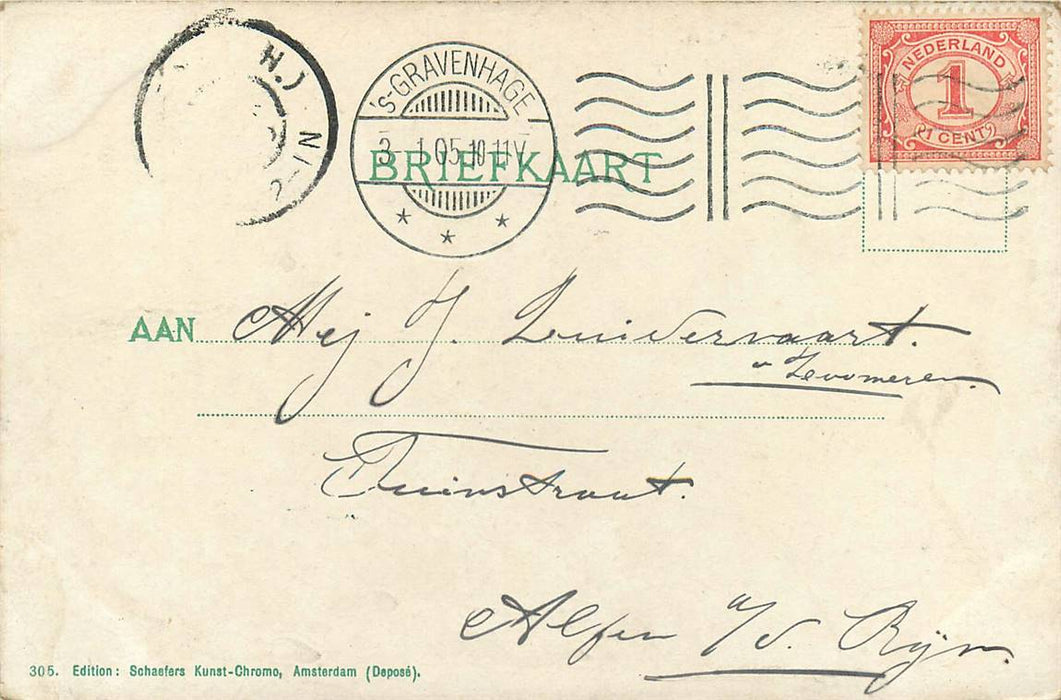 NEDERLAND
1
1 CENT
's-GRAVENHAGE
3-1.05.10-11V
BRIEFKAART
AAN Mej J. Zuidervaart.
Tuinstraat.
Alfen a/d Rijn
305. Edition: Schaefers Kunst-Chromo, Amsterdam (Deposé).